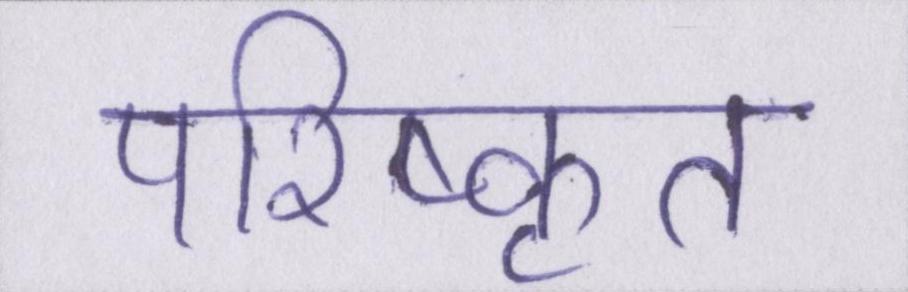 परिष्कृत